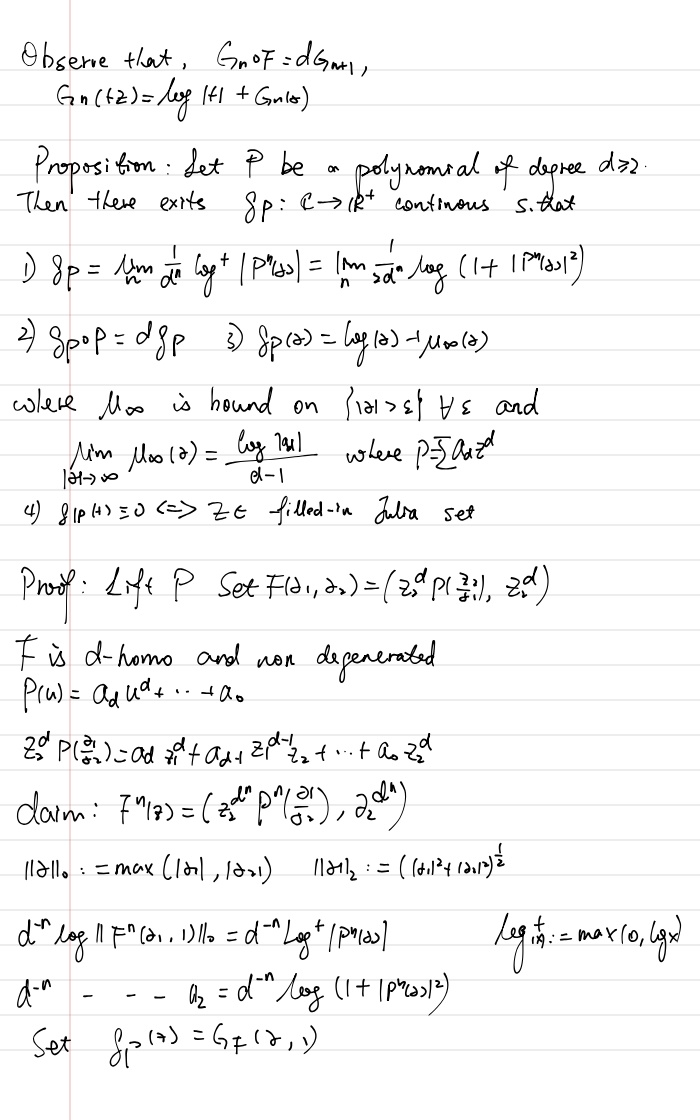 Observe that, Gn∘F = dGn+1,
Gn(tz) = log |t| + Gn(z)
Proposition: Let P be a polynomial of degree d≥2.
Then there exits gp: ℂ → ℝ⁺ continous s.that
1) gp = lim_n 1/dⁿ log⁺ |Pⁿ(z)| = lim_n 1/2dⁿ log (1 + |Pⁿ(z)|²)
2) gp∘P = dgp 3) gp(z) = log(z) + μ∞(z)
where μ∞ is bound on {|z| > ε} ∀ ε and
lim_{|z|→∞} μ∞(z) = log |ad| / d-1 where P = Σ ad z^d
4) gp(z) ≡ 0 <=> Z ∈ filled-in Julia set
Proof: Lift P Set F(z1, z2) = (z2^d P(z2/z1), z2^d)
F is d-homo and non degenerated
P(u) = ad u^d + ·· + a0
z2^d P(z1/z2) = ad z1^d + ad-1 z1^{d-1} z2 + ··· + a0 z2^d
claim: Fⁿ(z) = (z2^{dⁿ} Pⁿ(z1/z2), z2^{dⁿ})
||z||0 := max (|z1|, |z2|) ||z||2 := (|z1|² + |z2|²)^{1/2}
d⁻ⁿ log || Fⁿ(z1, 1)||0 = d⁻ⁿ Log⁺ |Pⁿ(z)| log⁺(x) := max(0, lgx)
d⁻ⁿ - - - ||2 = d⁻ⁿ log (1 + |Pⁿ(z)|²)
Set gp(z) = GF(z, 1)